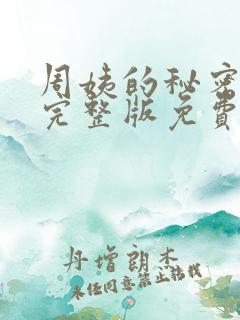 周姨的秘密
完整版免费
丹增朗杰
未经同意禁止转载